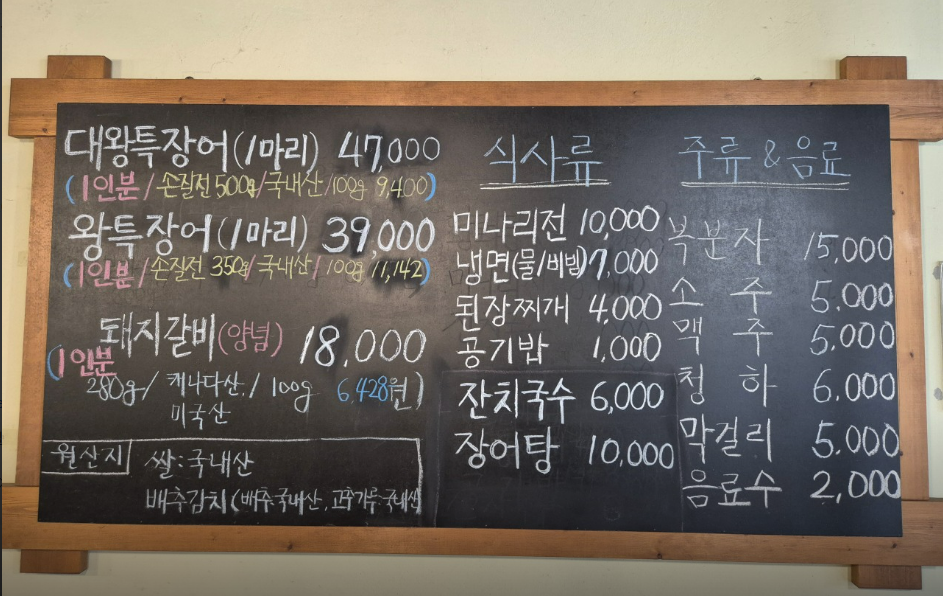 대왕특장어(1마리) 47,000
(1인분/손질전 500g/국내산/100g 9,400)
왕특장어(1마리) 39,000
(1인분/손질전 350g/국내산/100g 11,142)
돼지갈비(양념) 18,000
(1인분
280g/ 캐나다산./ 100g 6,428원)
미국산
원산지
쌀:국내산
배추김치(배추국내산, 고추가루:국내산
식사류
미나리전 10,000
냉면(물/비빔) 7,000
된장찌개 4,000
공기밥 1,000
잔치국수 6,000
장어탕 10,000
주류&음료
복분자 15,000
소주 5.000
맥주 5.000
청하 6.000
막걸리 5.000
음료수 2,000